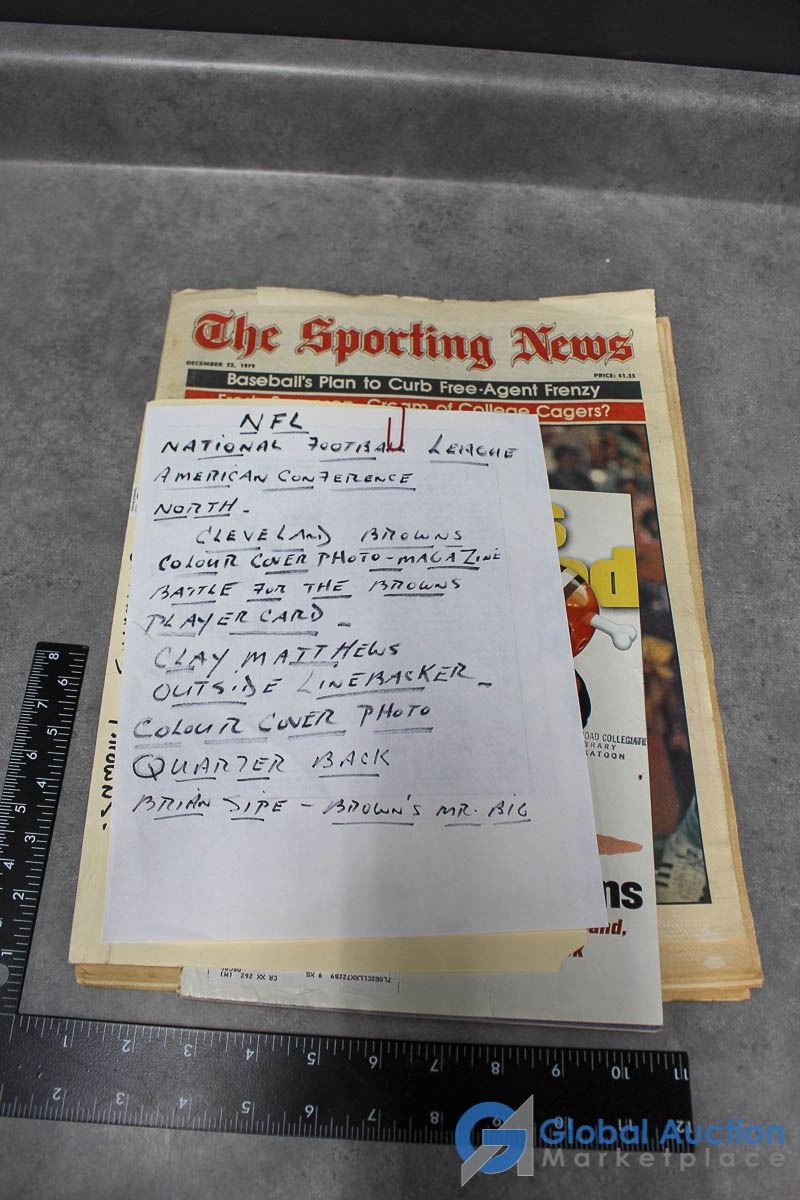 The Sporting News
DECEMBER 22, 1979
PRICE: $1.25
Baseball's Plan to Curb Free-Agent Frenzy
Cream of College Cagers?
NFL
NATIONAL FOOTBALL LEAGUE
AMERICAN CONFERENCE
NORTH -
CLEVELAND BROWNS
COLOUR COVER PHOTO - MAGAZINE
BATTLE FOR THE BROWNS
PLAYER CARD -
CLAY MATTHEWS
OUTSIDE LINEBACKER -
COLOUR COVER PHOTO
QUARTER BACK
BRIAN SIPE - BROWN'S MR. BIG
OAD COLLEGIATE
BRARY
KATOON
ns
and,
k
CR XX 262 (M)
1 2 3 4 5 6 7 8
1 2 3 4 5 6 7 8 9 10 11
6 7 8 9 10 11 12
Global Auction
Marketplace